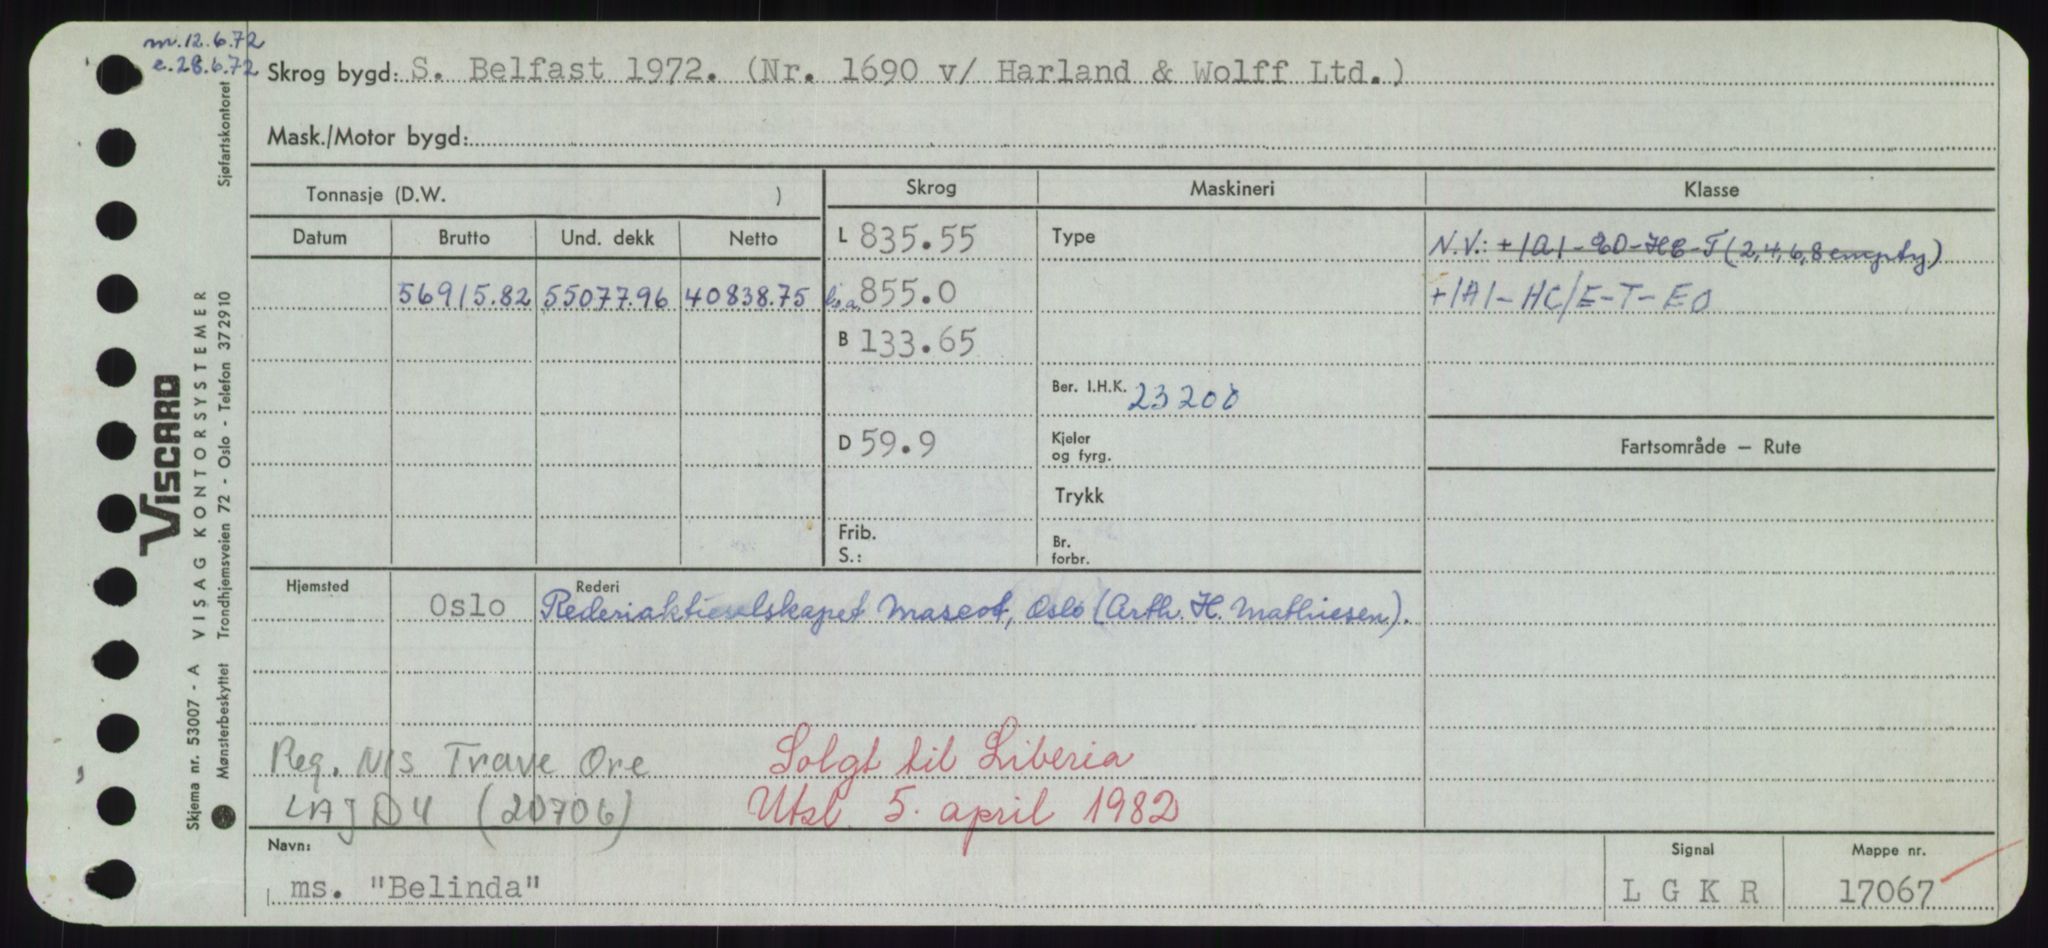 m. 12.6.72
e. 28.6.72
Skrog bygd: S. Belfast 1972. (Nr. 1690 v/ Harland & Wolff Ltd.)
Mask./Motor bygd:
Tonnasje (D.W. )
Skrog
Maskineri
Klasse
Datum Brutto Und. dekk Netto
56915.82 55077.96 40838.75
L 835.55
l.o.a. 855.0
B 133.65
D 59.9
Frib.
S.:
Type
Ber. I.H.K. 23200
Kjeler
og fyrg.
Trykk
Br.
forbr.
N.V.: +1A1-EO-HC-T (2,4,6,8 empty)
+1A1-HC/E-T-EO
Fartsområde — Rute
Hjemsted Rederi
Oslo Rederiaktieselskapet Mascot, Oslo (Arth. H. Mathiesen).
Reg. M/S Trave Ore
LAJD4 (20706)
Solgt til Liberia
Utsl. 5. april 1982
Navn: Signal Mappe nr.
ms. "Belinda" L G K R 17067
VISCARD
Skjema nr. 53007 - A VISAG KONTORSYSTEMER
Mønsterbeskyttet Trondhjemsveien 72 - Oslo - Telefon 372910
Sjøfartskontoret